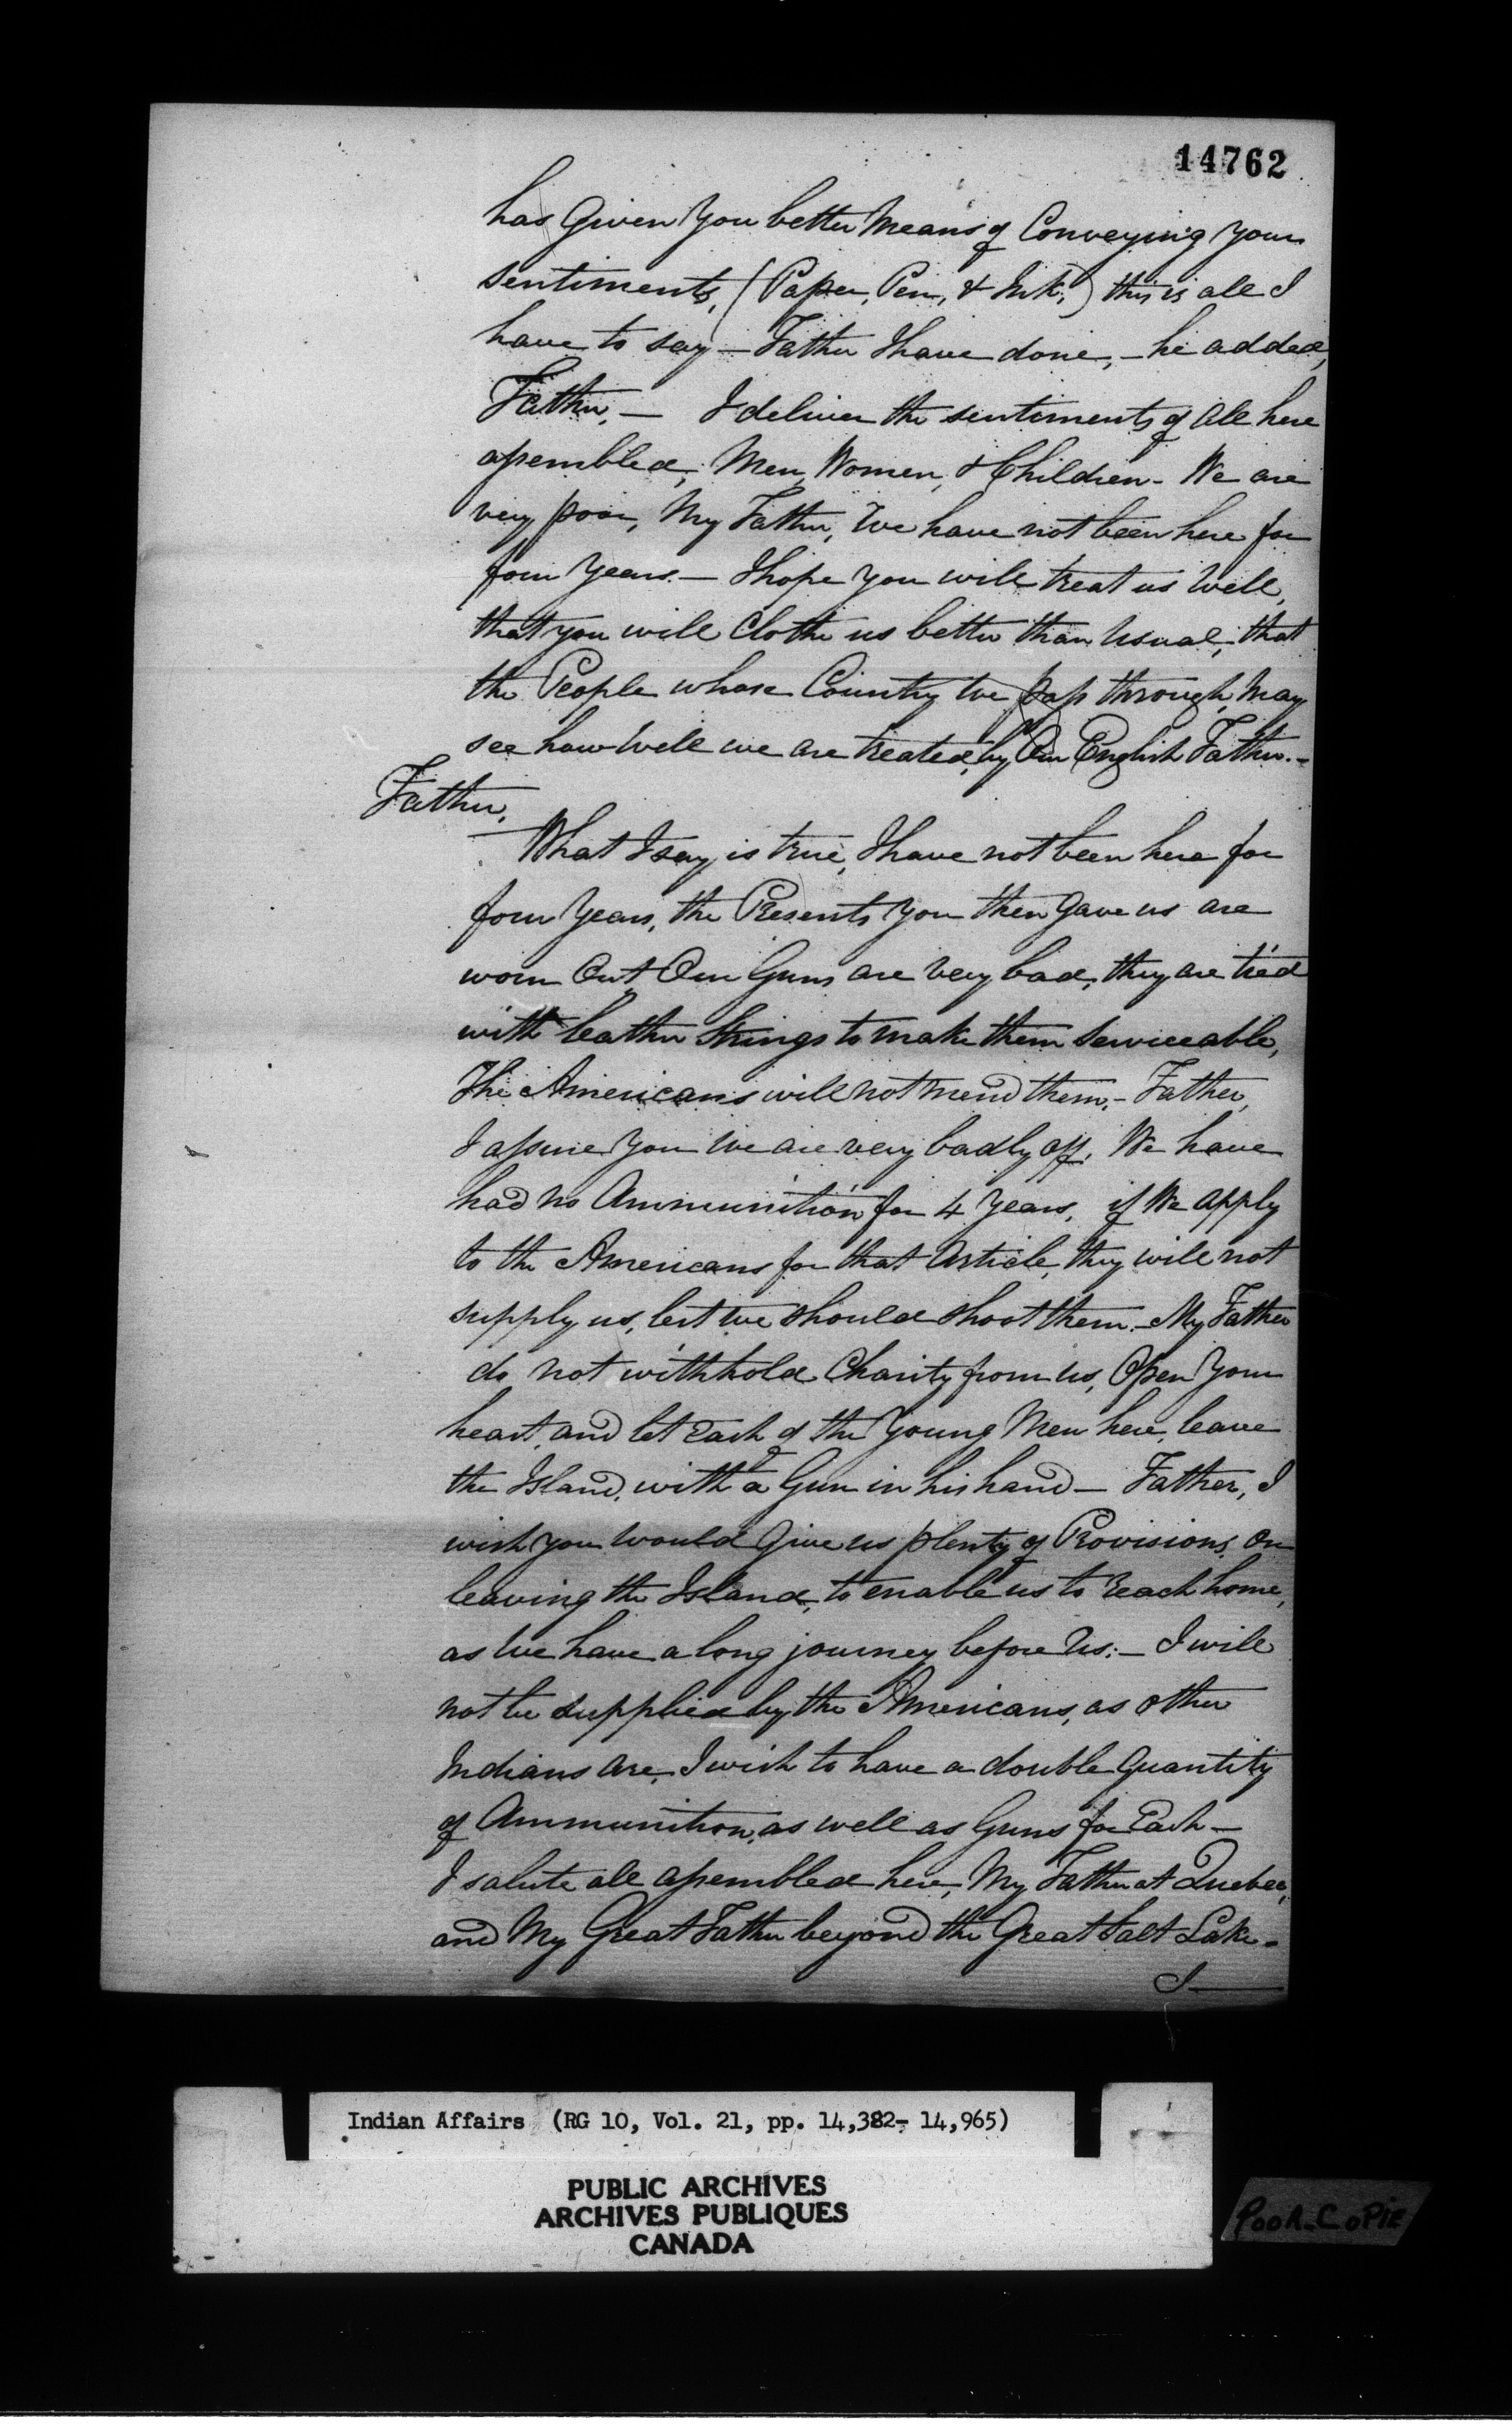 14762
has Given You better Means of Conveying Your
sentiments, (Paper, Pen, & Ink,) this is all I
have to say — Father I have done, — he added,
Father, — I deliver the sentiments of All here
assembled, Men, Women, & Children - We are
very poor, My Father, We have not been here for
four Years. — I hope You will treat us Well,
that you will Clothe us better than Usual, that
the People whose Country We pass through, May
see how Well we are treated, by Our English Father. -
Father,
What I say is true, I have not been here for
four Years, the Presents You then Gave us are
worn Out, Our Guns are Very bad, they are tied
with leather Strings to make them Serviceable,
The Americans will not mend them, - Father,
I assure You We are very badly off, We have
had no Ammunition for 4 Years, if We apply
to the Americans for that Article, they will not
supply us, lest We should shoot them. - My Father
do not withhold Charity from Us, Open Your
heart, and let Each of the Young Men here, leave
the Island, with a Gun in his hand — Father, I
wish you would Give us plenty of Provisions, On
leaving the Island, to enable us to Reach home,
as We have a long journey before Us: — I will
not be supplied by the Americans, as other
Indians Are, I wish to have a double Quantity
of Ammunition, as well as Guns for Each —
I salute all assembled here, My Father at Quebec,
and My Great Father beyond the Great Salt Lake -
I —
Indian Affairs (RG 10, Vol. 21, pp. 14,382- 14,965)
PUBLIC ARCHIVES
ARCHIVES PUBLIQUES
CANADA
POOR COPIE